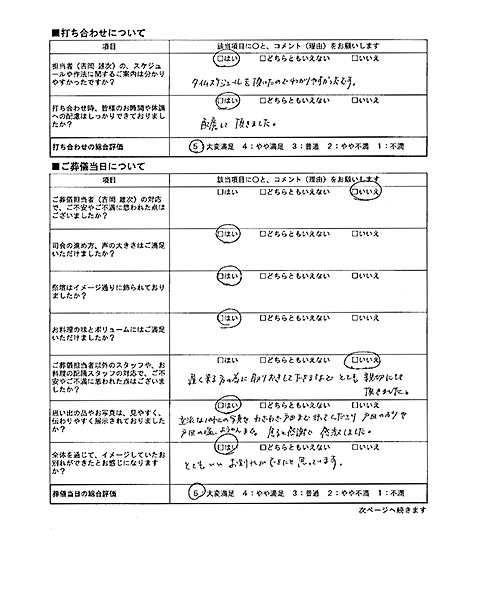 ■打ち合わせについて
項目 該当項目に○と、コメント(理由)をお願いします
担当者(吉岡 雄次)の、スケジュ
ールや作法に関するご案内は分かり
やすかったですか?
□はい □どちらともいえない □いいえ
タイムスケジュールを頂いたのでわかりやすかったです。
打ち合わせ時、皆様のお時間や体調
への配慮はしっかりできておりまし
たか?
□はい □どちらともいえない □いいえ
配慮して頂きました。
打ち合わせの総合評価 5:大変満足 4:やや満足 3:普通 2:やや不満 1:不満
■ご葬儀当日について
項目 該当項目に○と、コメント(理由)をお願いします
ご葬儀担当者(吉岡 雄次)の対応
で、ご不安やご不満に思われた点は
ございましたか?
□はい □どちらともいえない □いいえ
司会の進め方、声の大きさはご満足
いただけましたか?
□はい □どちらともいえない □いいえ
祭壇はイメージ通りに飾られており
ましたか?
□はい □どちらともいえない □いいえ
お料理の味とボリュームにはご満足
いただけましたか?
□はい □どちらともいえない □いいえ
ご葬儀担当者以外のスタッフや、お
料理の配膳スタッフの対応で、ご不
安やご不満に思われた点はございま
したか?
□はい □どちらともいえない □いいえ
遅く来る方の為に取りおきして下さるなど とても 親切にして
頂きました。
思い出の品やお写真は、見やすく、
伝わりやすく展示されておりました
か?
□はい □どちらともいえない □いいえ
の写真を わざわざ 戸田まで 行ってくださり 戸田の
感謝で 感激しました。
全体を通じて、イメージしていたお
別れができたとお感じになります
か?
□はい □どちらともいえない □いいえ
とてもいい お別れができたと思っています。
葬儀当日の総合評価 5:大変満足 4:やや満足 3:普通 2:やや不満 1:不満
次ページへ続きます